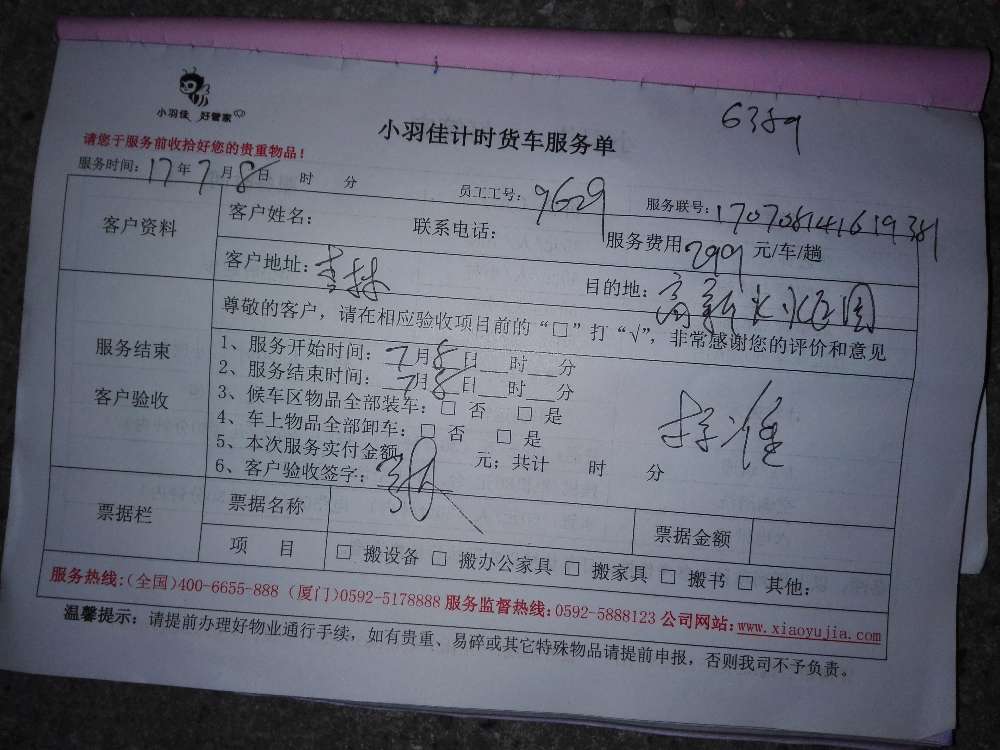 6389
小羽佳 好管家
小羽佳计时货车服务单
请您于服务前收拾好您的贵重物品！
服务时间：17年7月8日 时 分 员工工号：9629 服务联号：17070814161938
客户资料 客户姓名： 联系电话： 服务费用299元/车/趟
客户地址：杏林 目的地：高新 园
尊敬的客户，请在相应验收项目前的“□”打“√”，非常感谢您的评价和意见
服务结束
客户验收
1、服务开始时间：7月8日 时 分
2、服务结束时间：7月8日 时 分
3、候车区物品全部装车：□ 否 □ 是
4、车上物品全部卸车：□ 否 □ 是
5、本次服务实付金额 元；共计 时 分
6、客户验收签字：
票据栏 票据名称 票据金额
项 目 □ 搬设备 □ 搬办公家具 □ 搬家具 □ 搬书 □ 其他：
服务热线:(全国)400-6655-888 (厦门)0592-5178888 服务监督热线:0592-5888123 公司网站:www.xiaoyujia.com
温馨提示：请提前办理好物业通行手续，如有贵重、易碎或其它特殊物品请提前申报，否则我司不予负责。